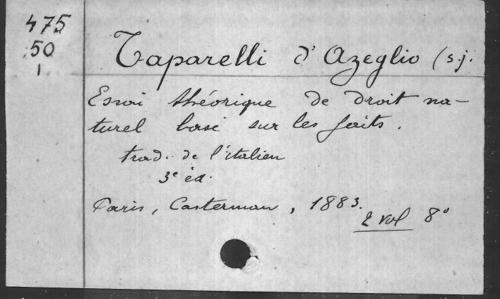 475
50
1
Taparelli d'Azeglio (s.j.
Essai théorique de droit na-
turel basé sur les faits.
trad. de l'italien
3e éd.
Paris, Casterman, 1883.
2 vol 8°